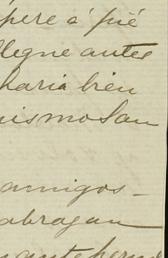 pere á pié
llegue antes
haria bien
uismo San
amigos -
abrazan